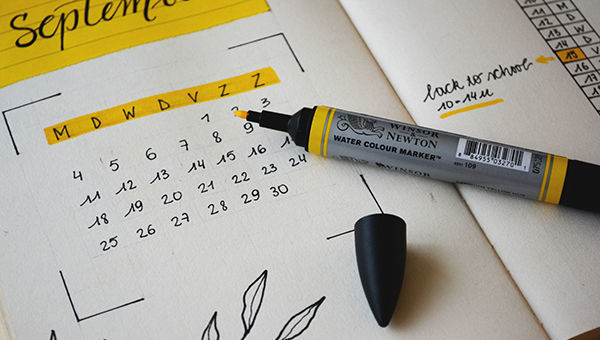 September
M D W D V Z Z
1 2 3
4 5 6 7 8 9
11 12 13 14 15 16
18 19 20 21 22 23 24
25 26 27 28 29 30
WINSOR
& NEWTON
WATER COLOUR MARKER™
WINSOR
back to school
10-14u
11 M
12 D
13 W
14 D
15 V
16
17